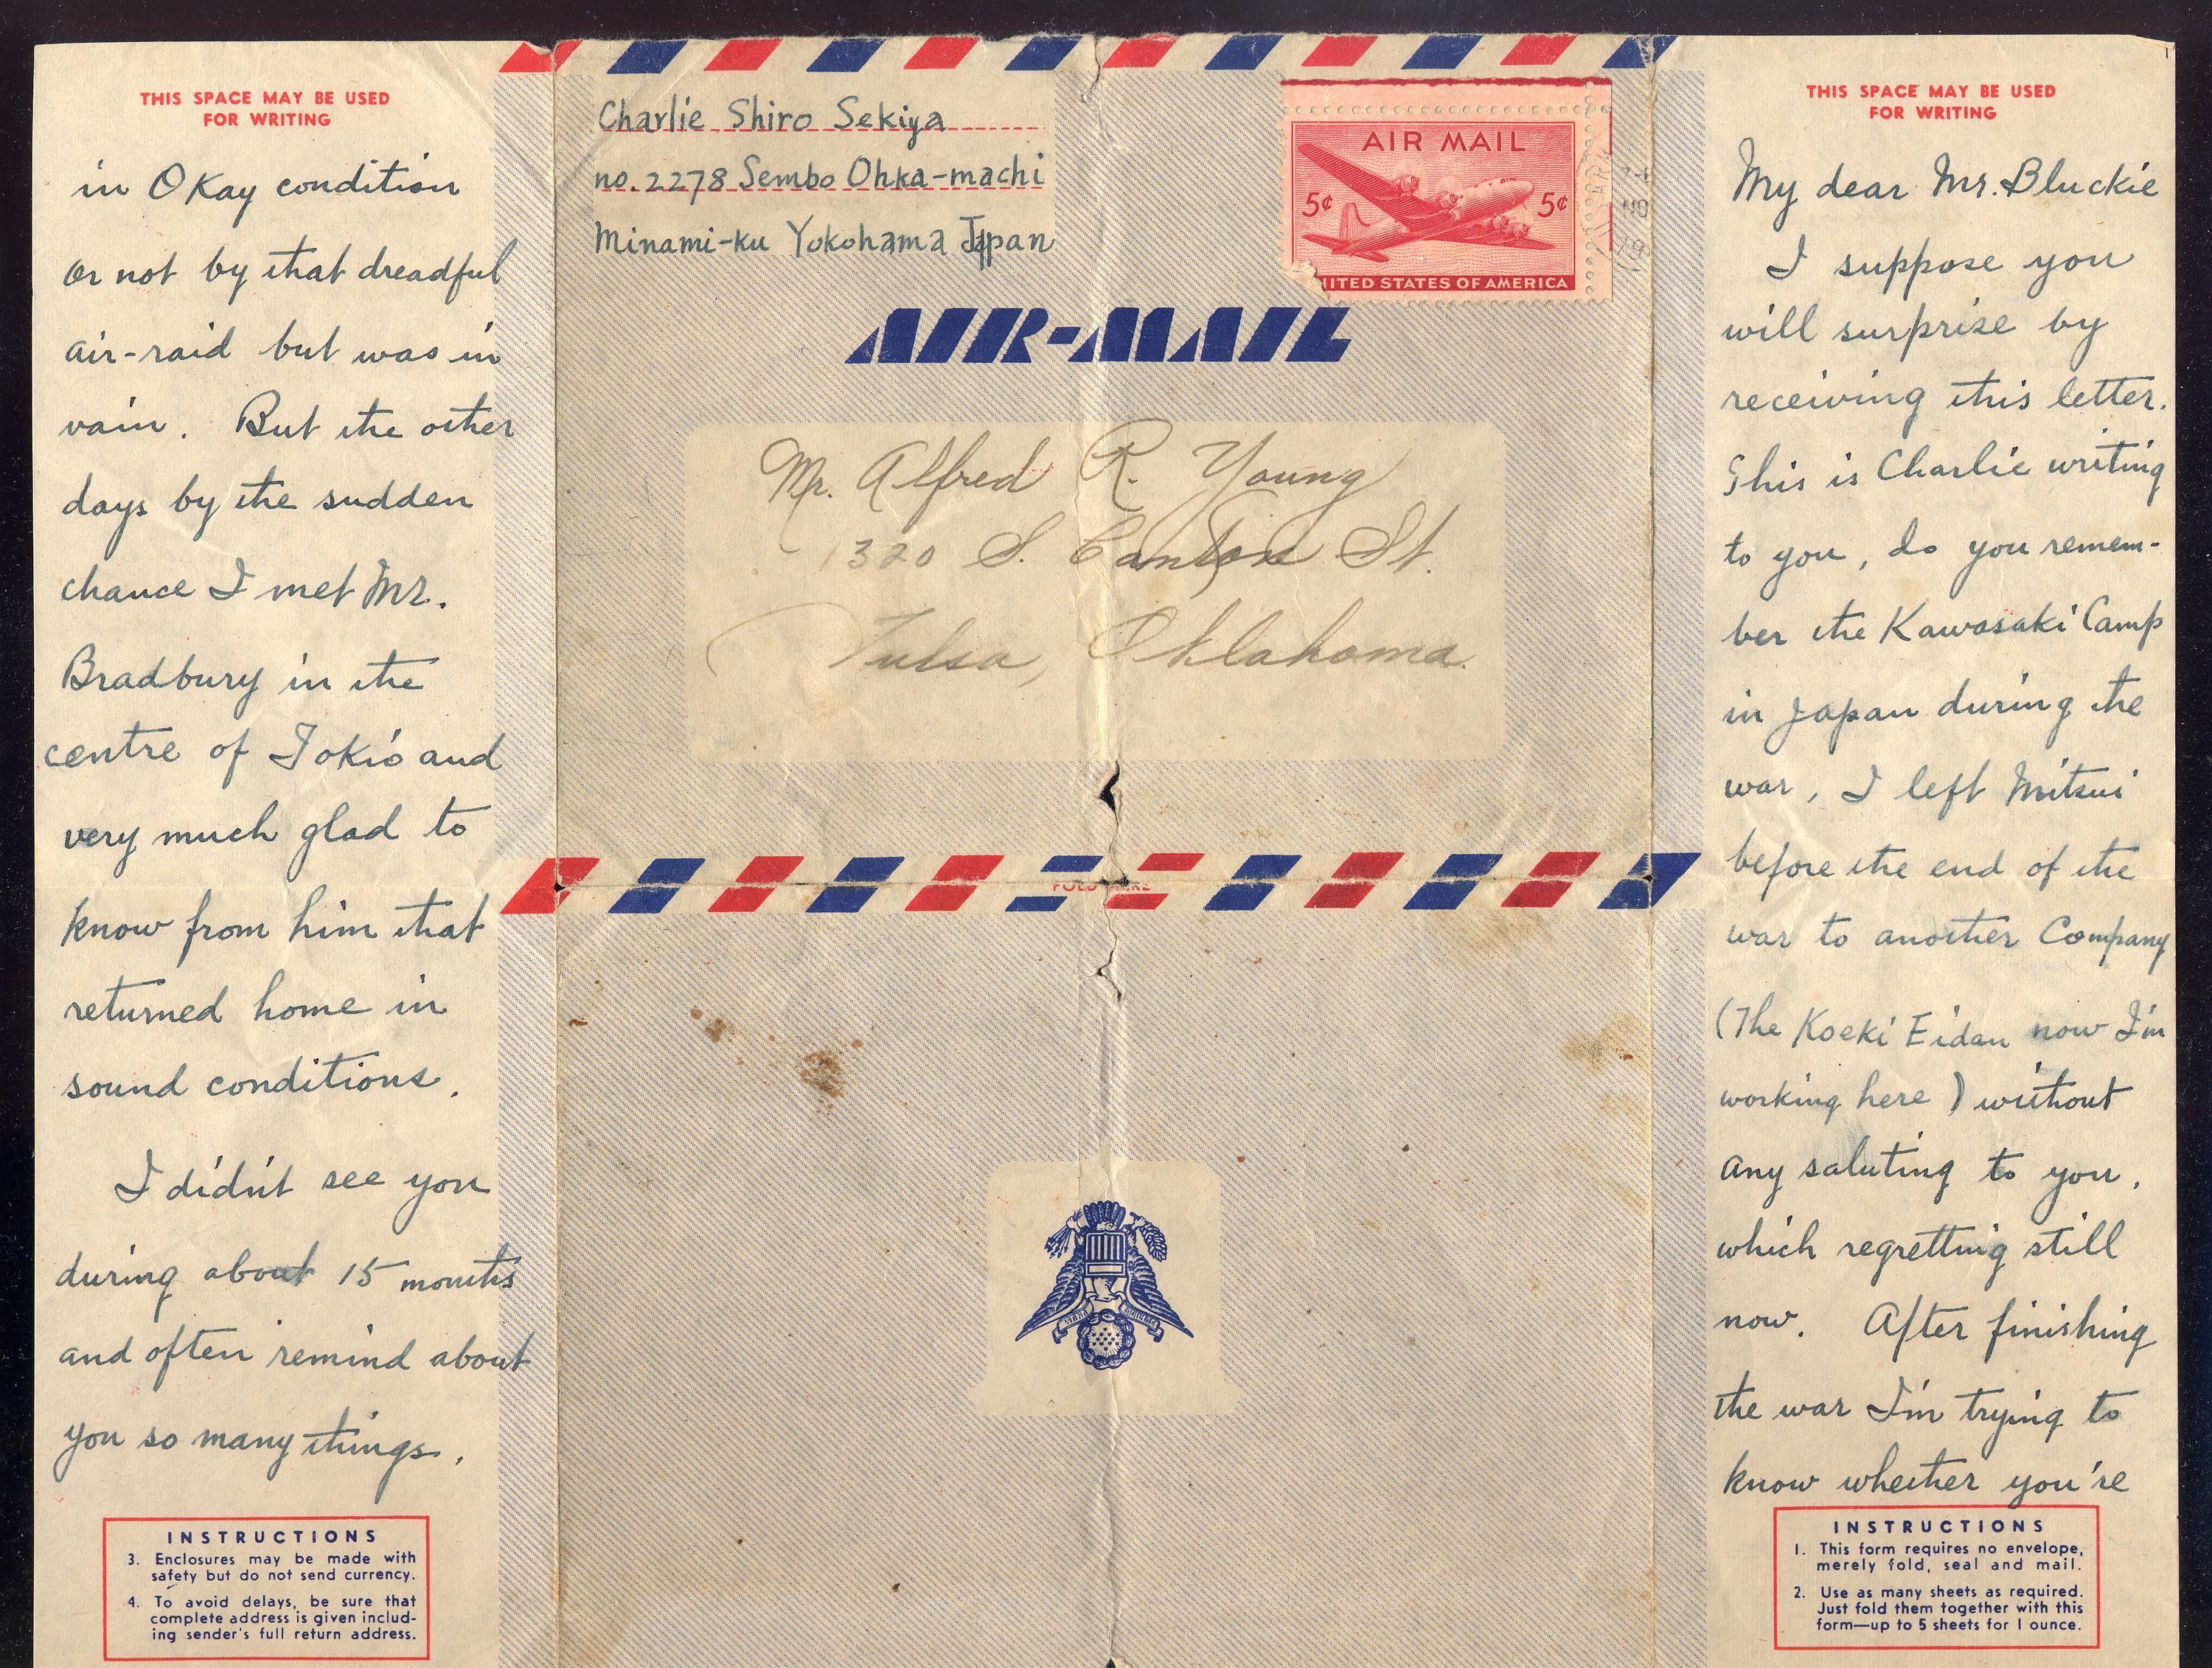 THIS SPACE MAY BE USED
FOR WRITING
in Okay condition
or not by that dreadful
air-raid but was in
vain. But the other
days by the sudden
chance I met Mr.
Bradbury in the
centre of Tokio and
very much glad to
know from him that
returned home in
sound conditions.
I didn't see you
during about 15 months
and often remind about
you so many things.
INSTRUCTIONS
3. Enclosures may be made with
safety but do not send currency.
4. To avoid delays, be sure that
complete address is given includ-
ing sender's full return address.
Charlie Shiro Sekiya
no. 2278 Sembo Ohka-machi
Minami-ku Yokohama Japan
AIR MAIL
5¢ 5¢
UNITED STATES OF AMERICA
AIR-MAIL
Mr. Alfred R. Young
1320 S. Canton St.
Tulsa, Oklahoma.
FOLD HERE
THIS SPACE MAY BE USED
FOR WRITING
My dear Mr. Bluckie
I suppose you
will surprize by
receiving this letter.
This is Charlie writing
to you, do you remem-
ber the Kawasaki Camp
in Japan during the
war, I left Mitsui
before the end of the
war to another Company
(The Koeki Eidan now I'm
working here) without
any saluting to you,
which regretting still
now. After finishing
the war I'm trying to
know whether you're
INSTRUCTIONS
1. This form requires no envelope,
merely fold, seal and mail.
2. Use as many sheets as required.
Just fold them together with this
form—up to 5 sheets for 1 ounce.